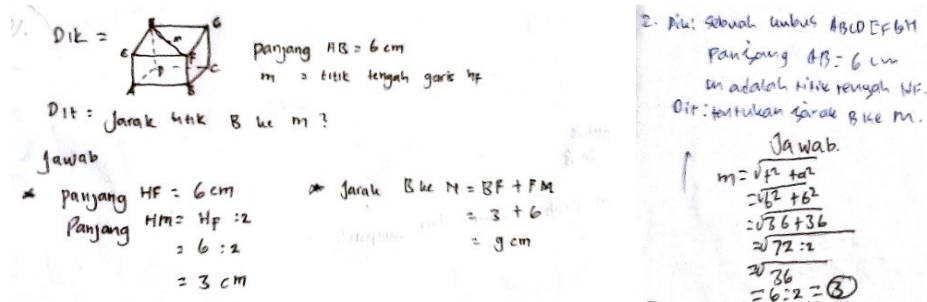 Dik =
H G
m
E F
D C
A B
panjang AB = 6 cm
m = titik tengah garis HF
Dit = Jarak titik B ke m ?
Jawab
* panjang HF = 6 cm
Panjang HM = HF : 2
= 6 : 2
= 3 cm
* Jarak B ke M = BF + FM
= 3 + 6
= 9 cm
2. Dik: Sebuah kubus ABCDEFGH
Panjang AB = 6 cm
m adalah titik tengah HF.
Dit: tentukan jarak B ke M.
Jawab.
m = √t² + a²
= √6² + 6²
= √36 + 36
= √72 : 2
= √36
= 6 : 2 = 3